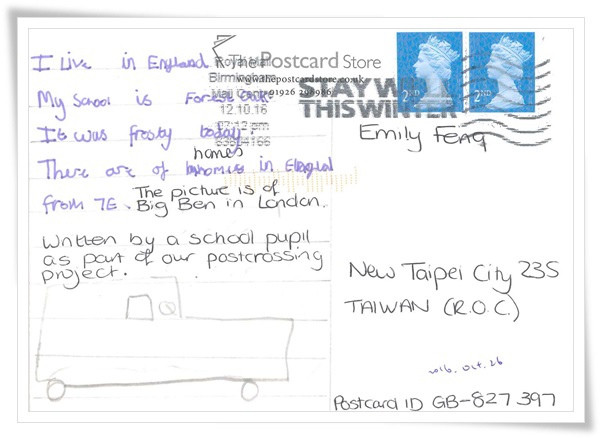 I Live in England
My School is Forest Oak.
It was frosty today.
There are of homes in England
from 7E. The picture is of
Big Ben in London.
Written by a school pupil
as part of our postcrossing
project.
The Postcard Store
www.thepostcardstore.co.uk
01926 298986
Royal Mail
Birmingham
Mail Centre
12.10.16
STAY WELL
THIS WINTER
2ND
2ND
Emily FENG
New Taipei City 235
TAIWAN (R.O.C.)
2016. Oct. 26
Postcard ID GB-827397